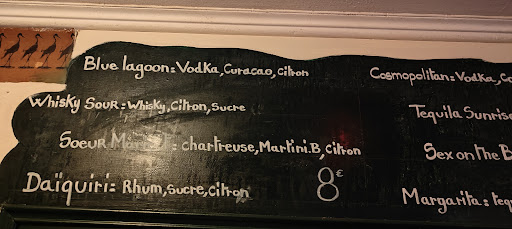 Blue lagoon: Vodka, Curacao, citron
Whisky Sour: Whisky, Citron, Sucre
Soeur : chartreuse, Martini.B, citron
Daïquiri: Rhum, sucre, citron
8€
Cosmopolitan: Vodka,
Tequila Sunrise
Sex on the B
Margarita: teq